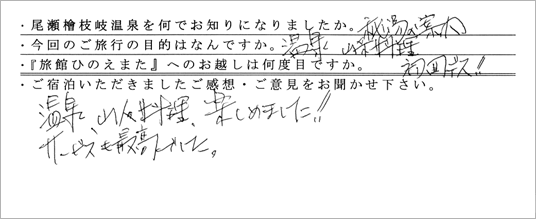 ・尾瀬檜枝岐温泉を何でお知りになりましたか。 秘湯の案内
・今回のご旅行の目的はなんですか。 温泉と山人料理
・『旅館ひのえまた』へのお越しは何度目ですか。 初回デス!!
・ご宿泊いただきましたご感想・ご意見をお聞かせ下さい。
温泉と山人料理、楽しめました!!
サービスも最高でした。